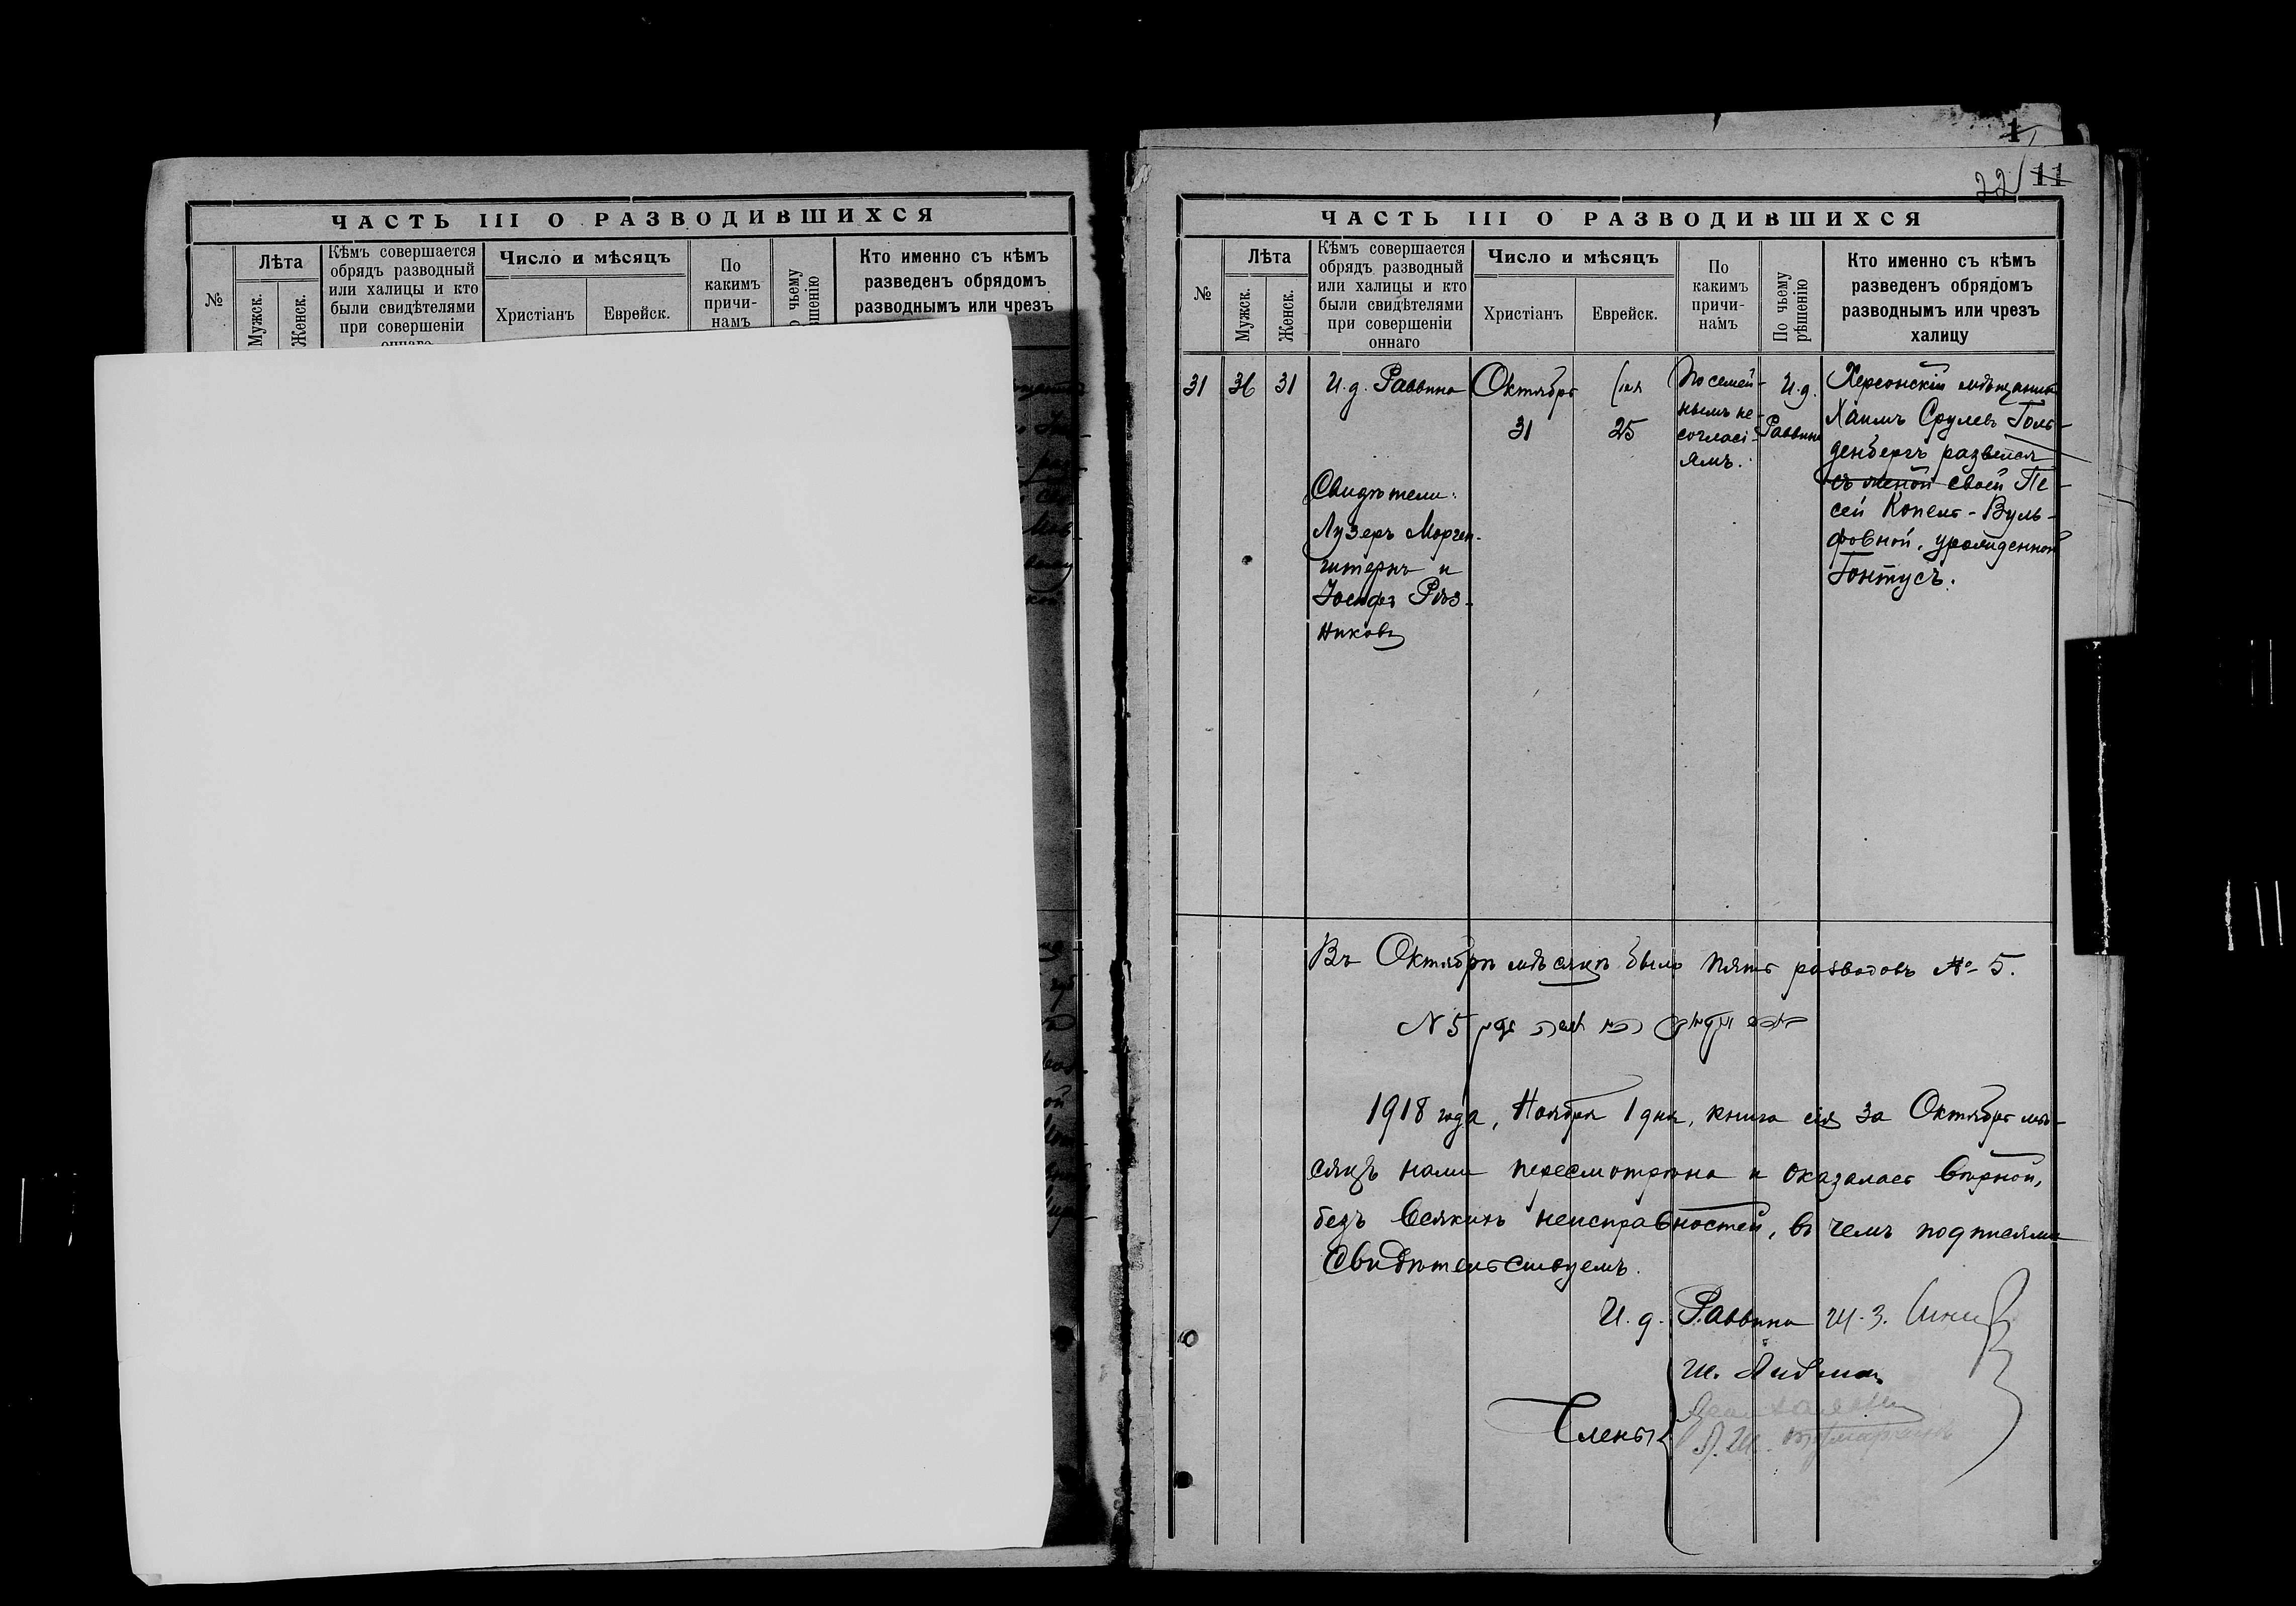 ЧАСТЬ III О РАЗВОДИВШИХСЯ
№
Лѣта
Мужск.
Женск.
Кѣмъ совершается
обрядъ разводный
или халицы и кто
были свидѣтелями
при совершеніи
Число и мѣсяцъ
Христіанъ
Еврейск.
По
какимъ
причи-
намъ
чьему
Кто именно съ кѣмъ
разведенъ обрядомъ
разводнымъ или чрезъ
1
22 11
ЧАСТЬ III О РАЗВОДИВШИХСЯ
№
Лѣта
Мужск.
Женск.
Кѣмъ совершается
обрядъ разводный
или халицы и кто
были свидѣтелями
при совершеніи
оннаго
Число и мѣсяцъ
Христіанъ
Еврейск.
По
какимъ
причи-
намъ
По чьему
рѣшенію
Кто именно съ кѣмъ
разведенъ обрядомъ
разводнымъ или чрезъ
халицу
31
36
31
И. д. Раввина
Свидѣтели:
Лузеръ Морген-
штернъ и
Іосифъ Рѣз-
никовъ
Октябрь
31
25
По семей-
нымъ не-
согласі-
ямъ.
И. д.
Раввина
Херсонскій мѣщанинъ
Хаимъ Срулевъ Голь-
денбергъ развелся
съ женой своей Пе-
сей Копель-Вуль-
фовной, урожденной
Гонтусъ.
Въ Октябрѣ мѣсяцѣ было пять разводовъ № 5.
N 5
1918 года, Ноября 1 дня, книга сія за Октябрь мѣ-
сяцъ нами пересмотрѣна и оказалась вѣрной,
безъ всякихъ неисправностей, въ чемъ подписями
свидѣтельствуемъ.
И. д. Раввина
Члены